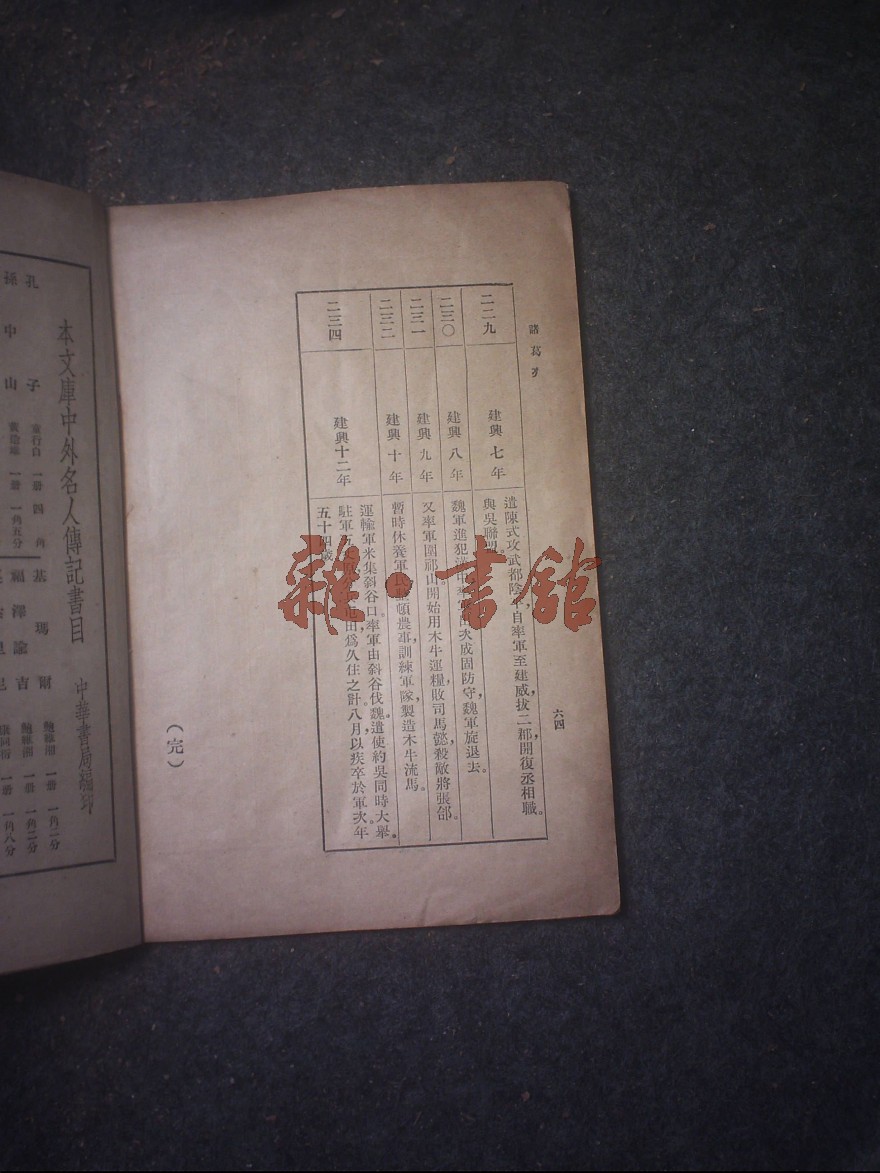 諸葛
六四
二二九
建興七年
遣陳式攻武都陰
自率軍至建威，拔二郡，開復丞相職。
與吳聯盟。
二三〇
建興八年
魏軍進犯漢中，率軍
次成固防守，魏軍旋退去。
二三一
建興九年
又率軍圍祁山，開始用木牛運糧，敗司馬懿，殺敵將張郃。
二三二
建興十年
暫時休養軍民，整頓農事，訓練軍隊，製造木牛流馬。
二三四
建興十二年
運輸軍米，集斜谷口。率軍由斜谷伐魏。遣使約吳同時大舉。
駐軍五丈
田，爲久住之計。八月，以疾卒於軍次，年
五十四歲。
（完）
雜·書館
本文庫中外名人傳記書目
中華書局編印
孔子
童行白 一册 四角
孫中山
一册 一角五分
基瑪爾
鮑維湘 一册 一角二分
福澤諭吉
鮑維湘 一册 一角二分
一册 一角八分